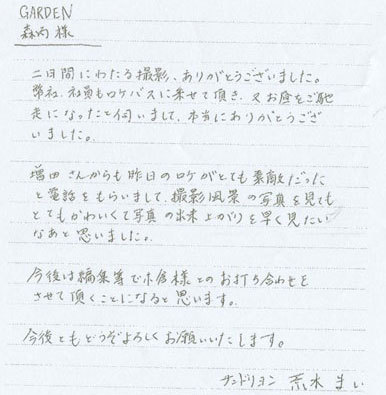 GARDEN
森内様
二日間にわたる撮影、ありがとうございました。
弊社 社員もロケバスに乗せて頂き、又お昼をご馳
走になったと伺いまして、本当にありがとうござ
いました。
増田さんからも昨日のロケがとても素敵だった
と電話をもらいまして、撮影風景の写真を見ても
とてもかわいくて写真の出来上がりを早く見たい
なあと思いました。
今後は編集等で小倉様とのお打ち合わせを
させて頂くことになると思います。
今後ともどうぞよろしくお願いいたします。
サンドリヨン 荒木 まい